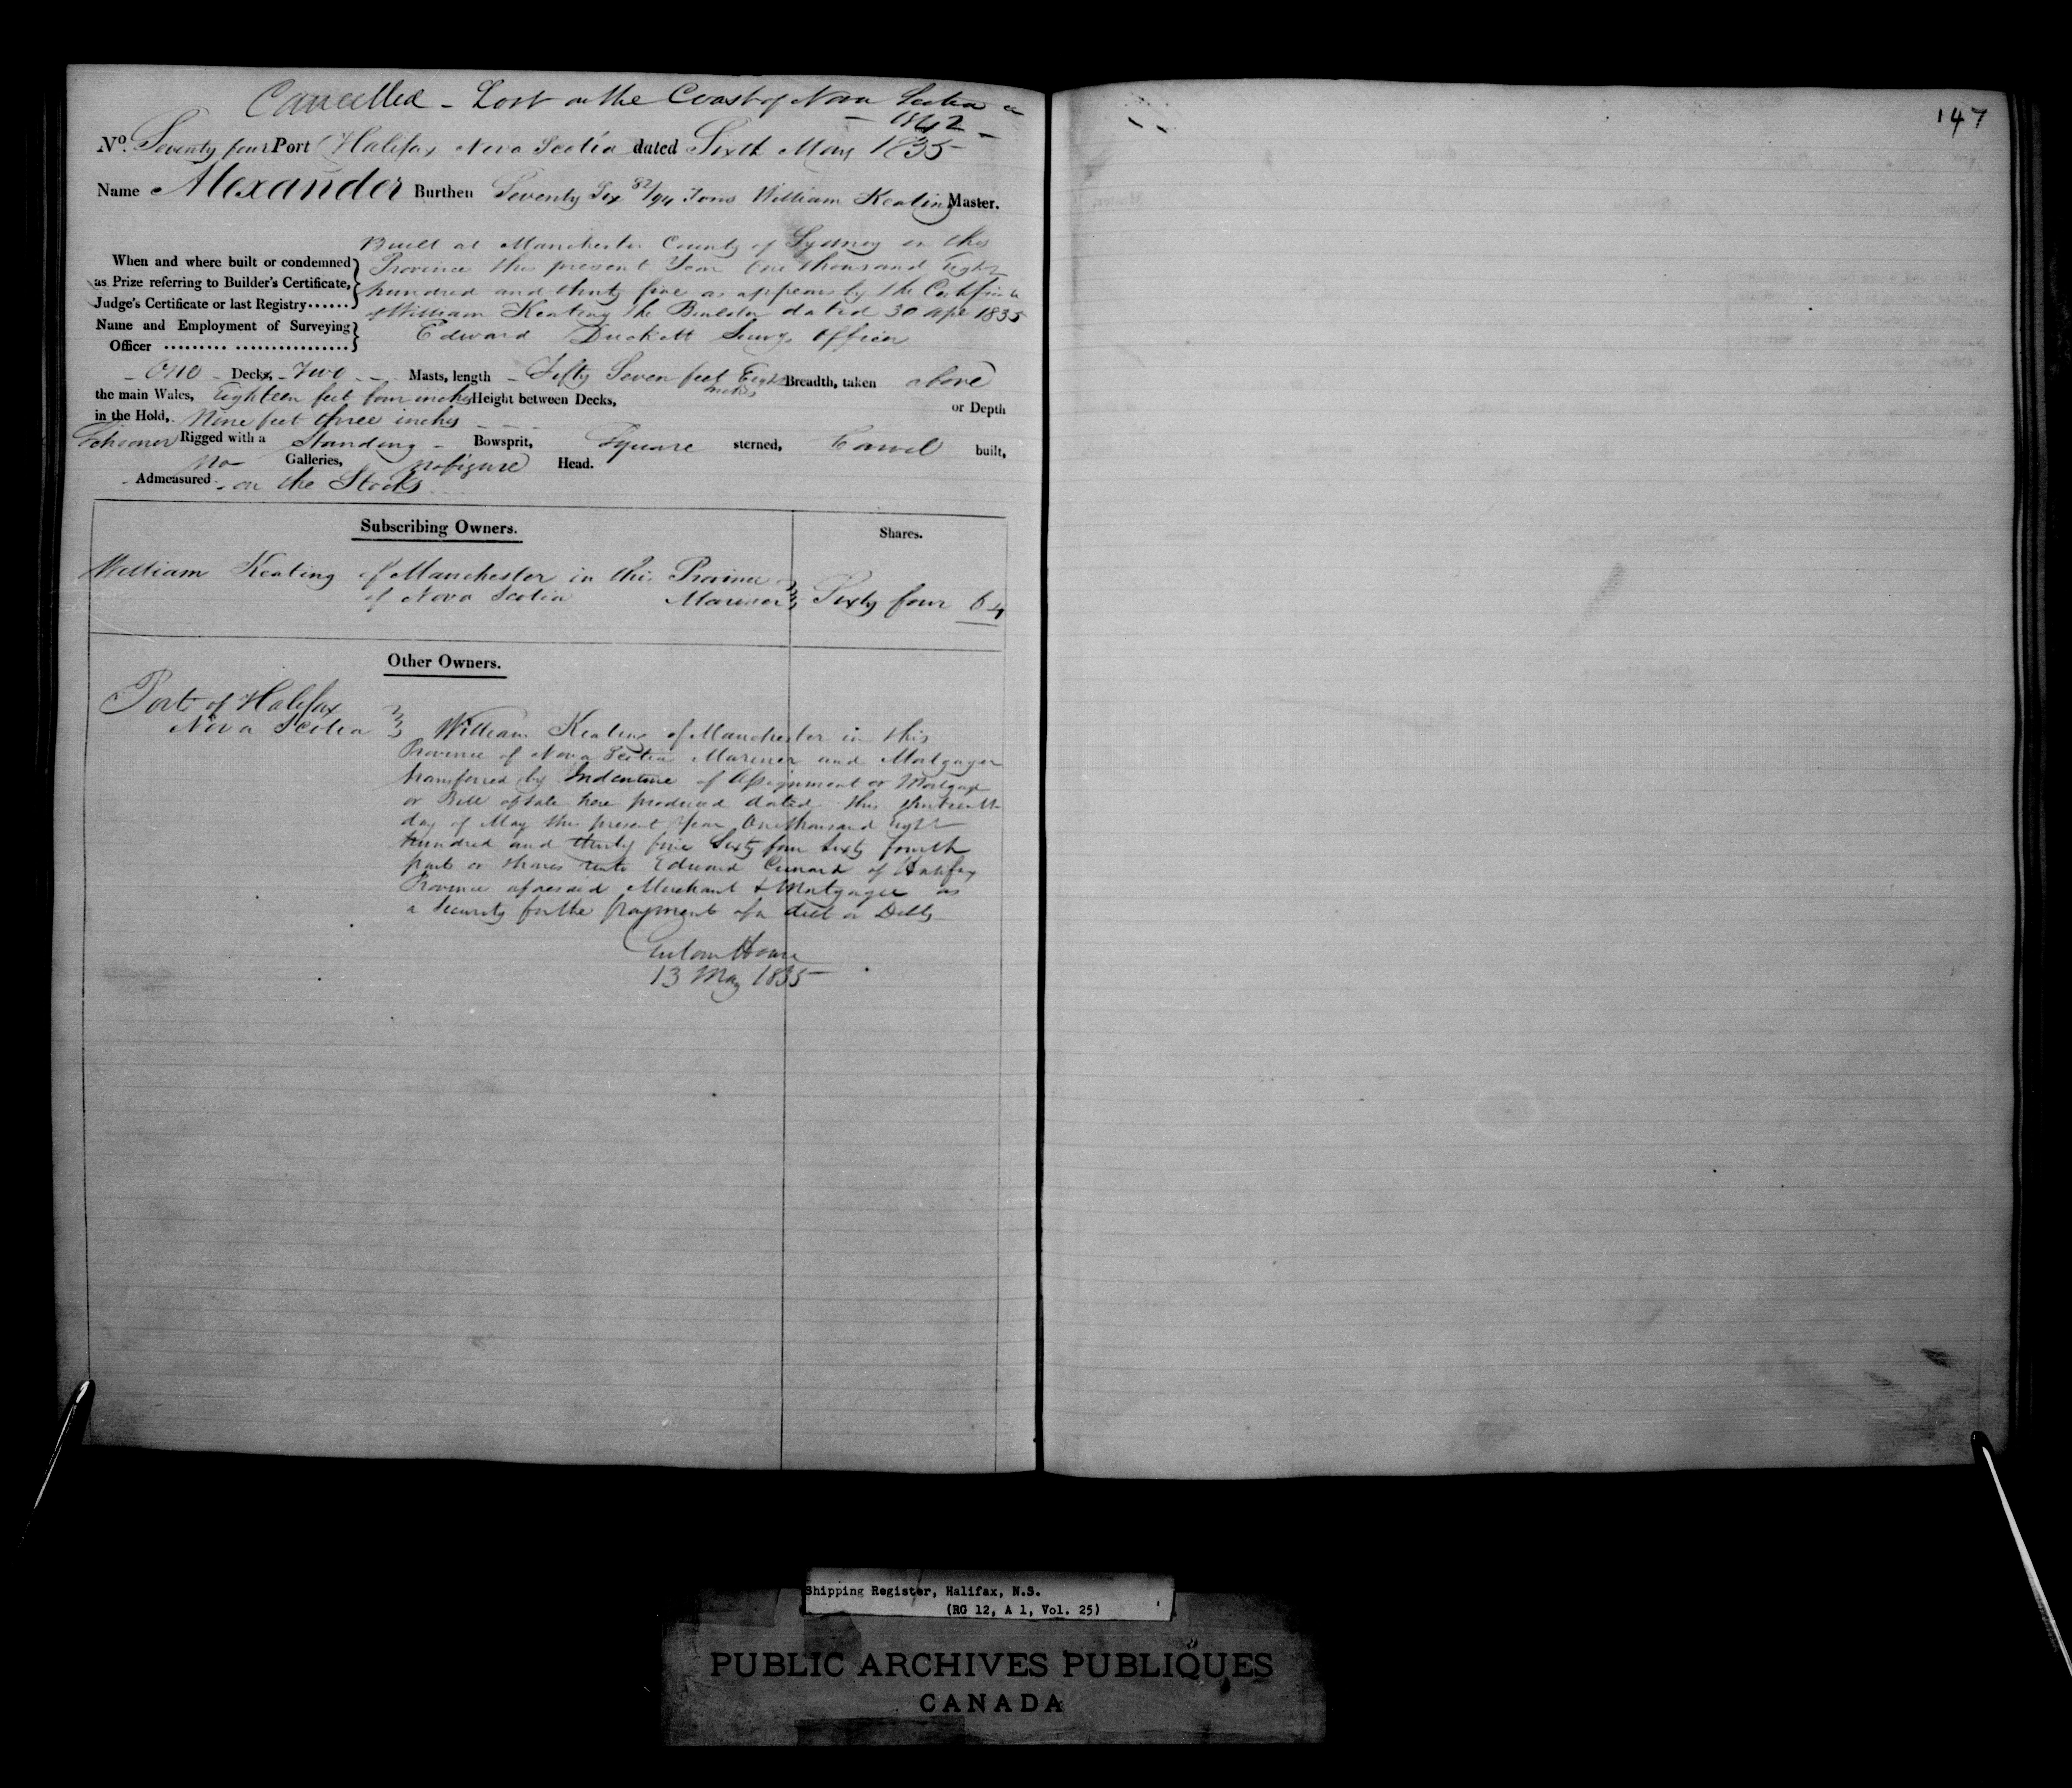 Cancelled - Lost on the Coast of Nova Scotia in
- 1842 -
No. Seventy four Port Halifax Nova Scotia dated Sixth May 1835
Name Alexander Burthen Seventy Six 82/94 Tons William Keating Master.
Built at Manchester County of Sydney in this
When and where built or condemned Province this present Year One thousand Eight
as Prize referring to Builder's Certificate, hundred and thirty five as appears by the Certificate
Judge's Certificate or last Registry...... of William Keating the Builder dated 30 Apl 1835
Name and Employment of Surveying
Officer ......... ................ Edward Duckett Survg Officer
- One - Decks, - Two - - Masts, length - Fifty Seven feet Eight inches Breadth, taken above
the main Wales, Eighteen feet four inches Height between Decks, or Depth
in the Hold, Nine feet three inches - - -
Schooner Rigged with a Standing - Bowsprit, Square sterned, Carvel built,
no Galleries, no figure Head.
Admeasured - on the Stocks
Subscribing Owners. Shares.
William Keating of Manchester in this Province
of Nova Scotia Mariner Sixty four 64
Other Owners.
Port of Halifax
Nova Scotia William Keating of Manchester in this
Province of Nova Scotia Mariner and Mortgager
transferred by Indenture of Assignment or Mortgage
or Bill of Sale here produced dated this thirteenth
day of May this present Year One thousand Eight
hundred and thirty five Sixty four Sixty fourth
parts or shares unto Edward Cunard of Halifax
Province aforesaid Merchant & Mortgagee as
a Security for the payment of a debt or Debts
Custom House
13 May 1835
147
Shipping Register, Halifax, N.S.
(RG 12, A 1, Vol. 25)
PUBLIC ARCHIVES PUBLIQUES
CANADA